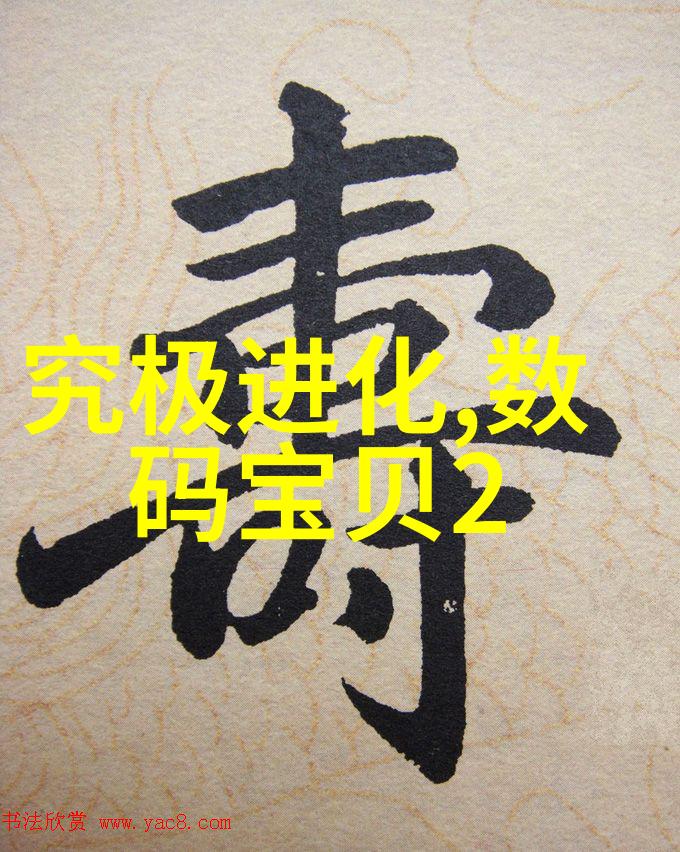 壽
究极进化,数
码宝贝2
书法欣赏 www.yac8.com